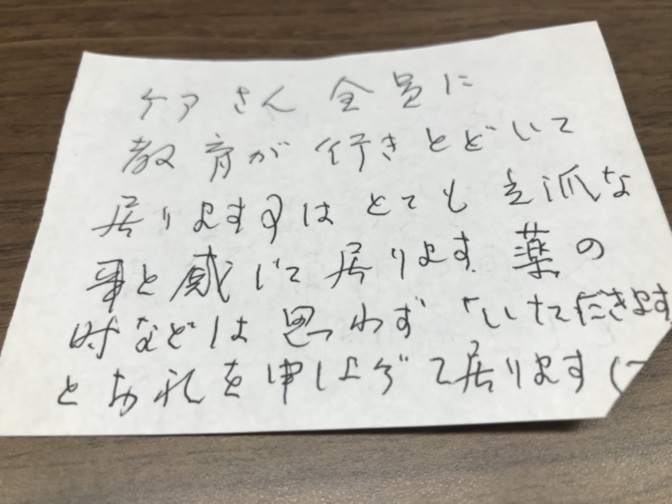 ケアさん 全員に
教育が 行きとどいて
居りますのは とても 立派な
事と感じて 居ります。薬の
時などは 思わず "いただきます
とお礼を申し上げて居ります(